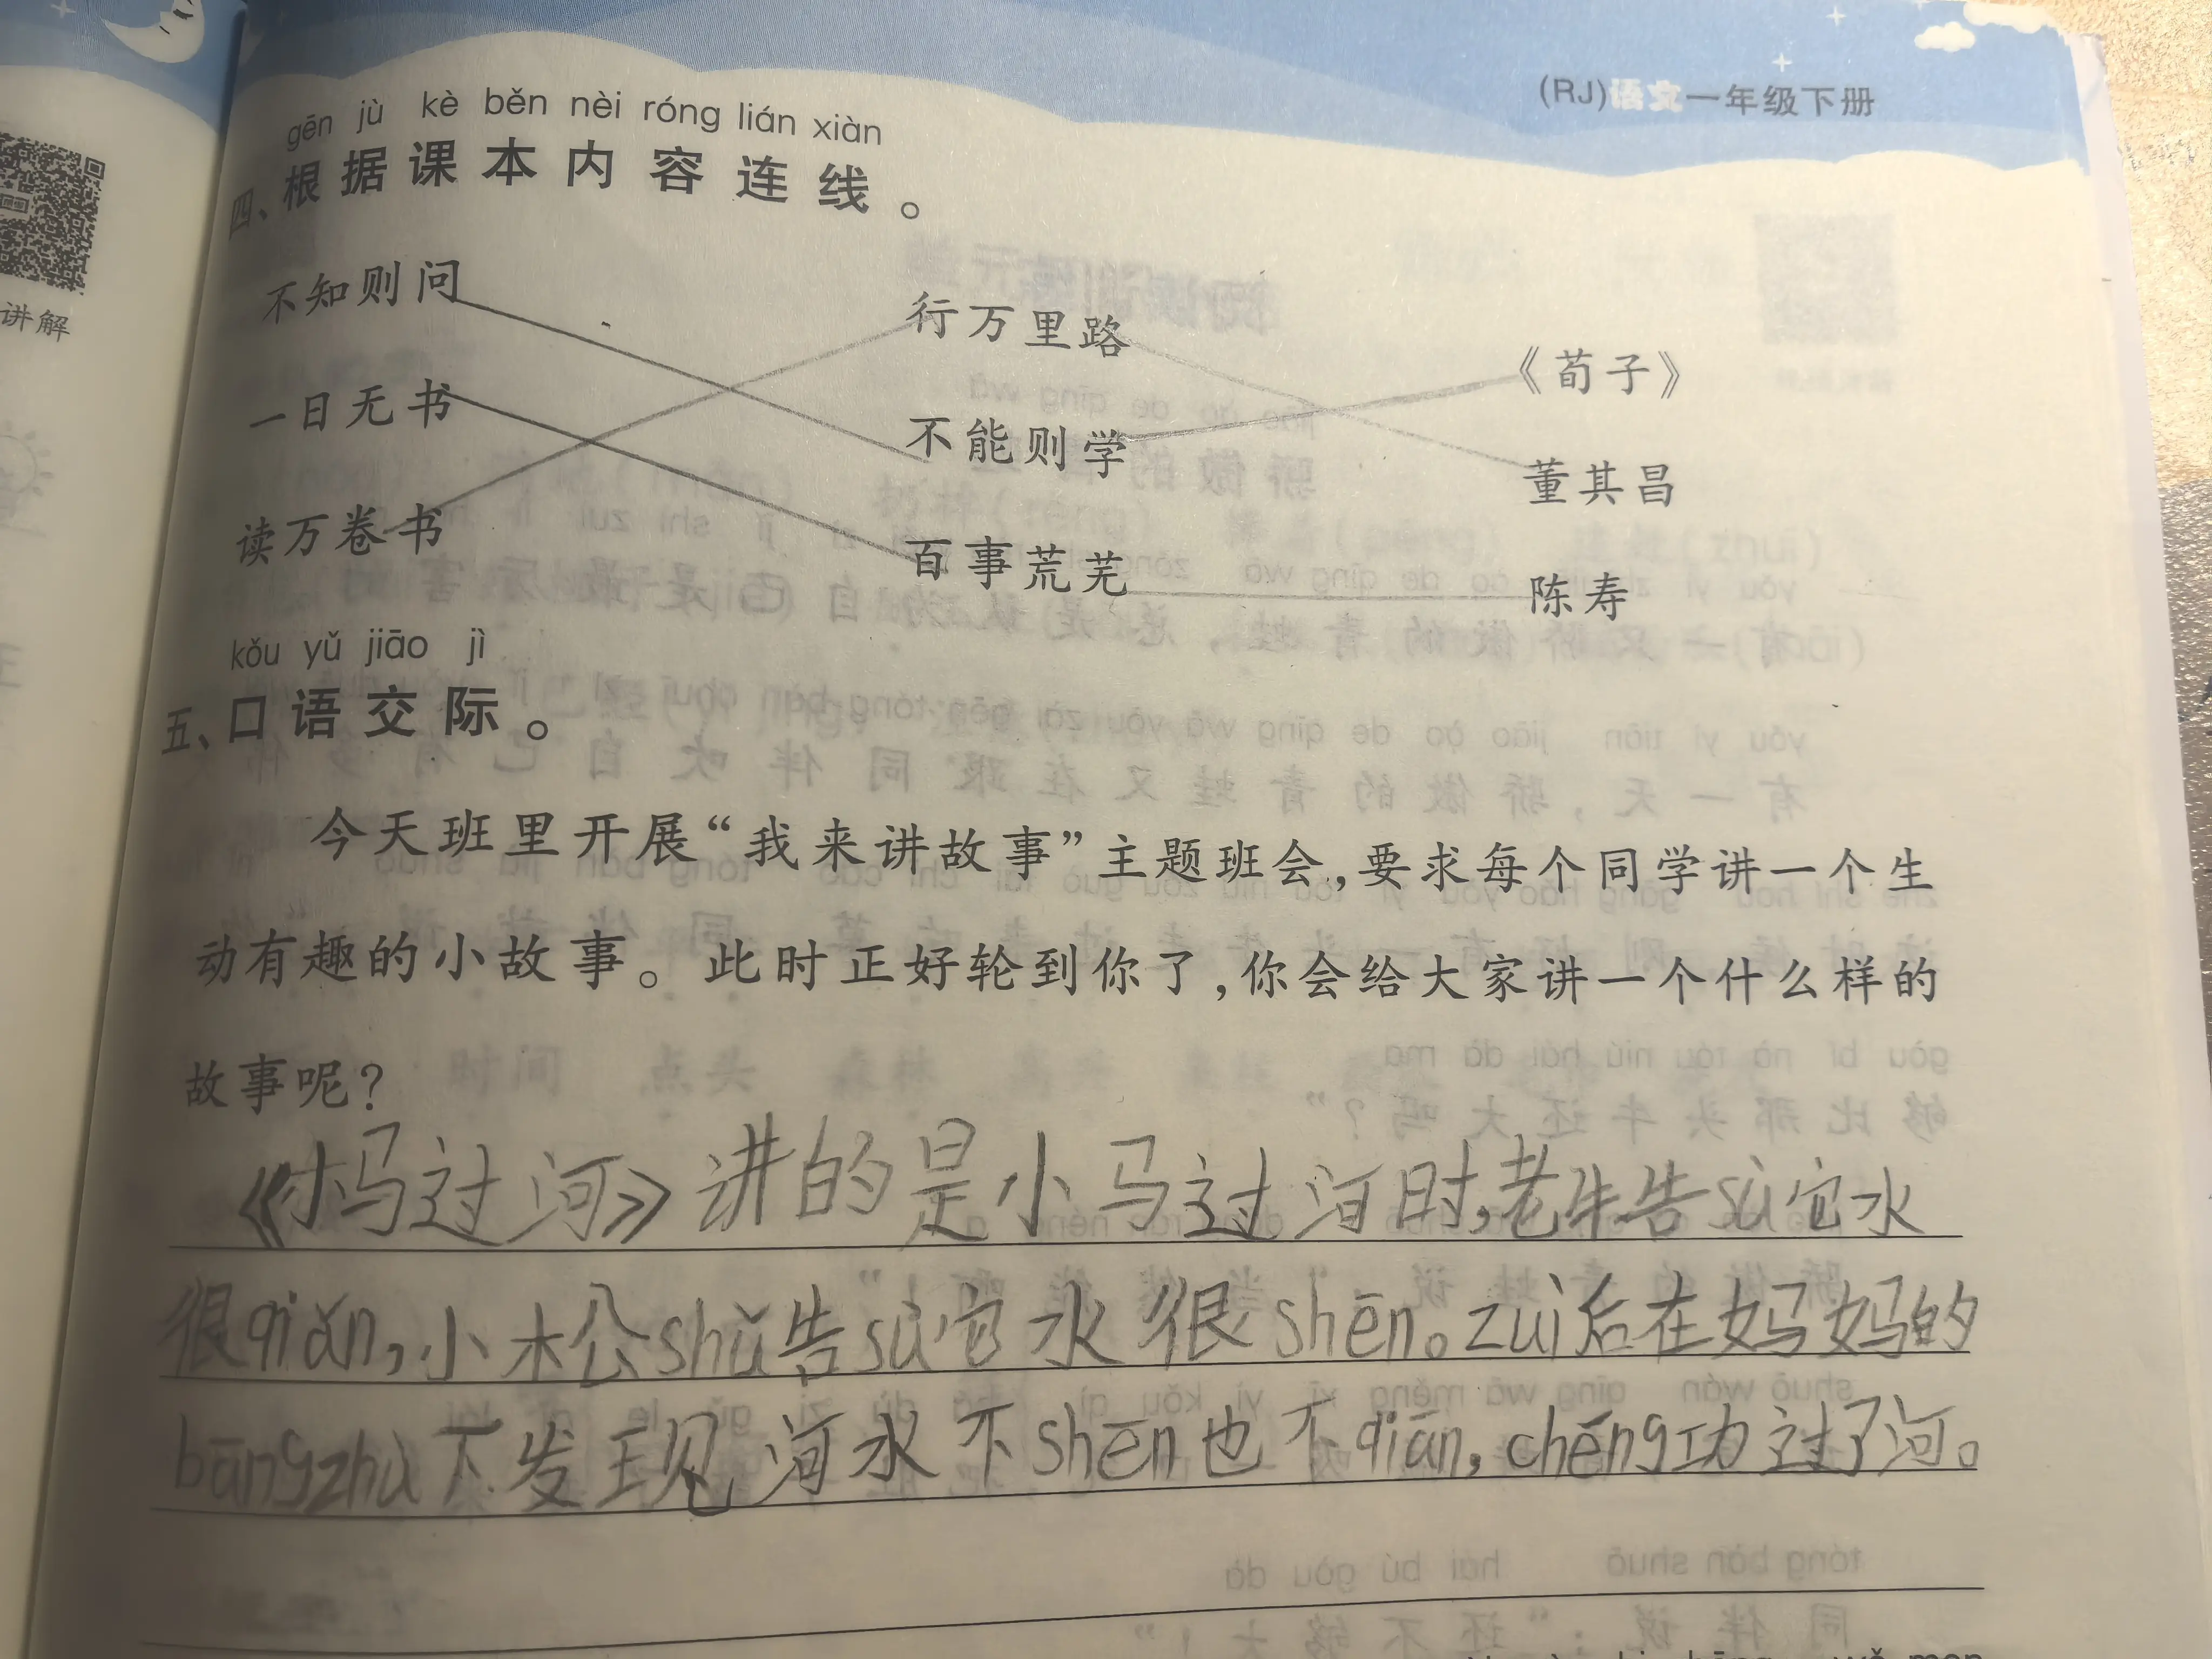 (RJ)语文一年级下册
讲解
gēn jù kè běn nèi róng lián xiàn
四、根据课本内容连线。
不知则问 行万里路 《荀子》
一日无书 不能则学 董其昌
读万卷书 百事荒芜 陈寿
kǒu yǔ jiāo jì
五、口语交际。
今天班里开展“我来讲故事”主题班会,要求每个同学讲一个生
动有趣的小故事。此时正好轮到你了,你会给大家讲一个什么样的
故事呢?
《小马过河》讲的是小马过河时,老牛告sù它水
很qiǎn,小松shǔ告sù它水很shēn。zuì后在妈妈的
bāngzhù下发现河水不shēn也不qiān,chéng功过了河。